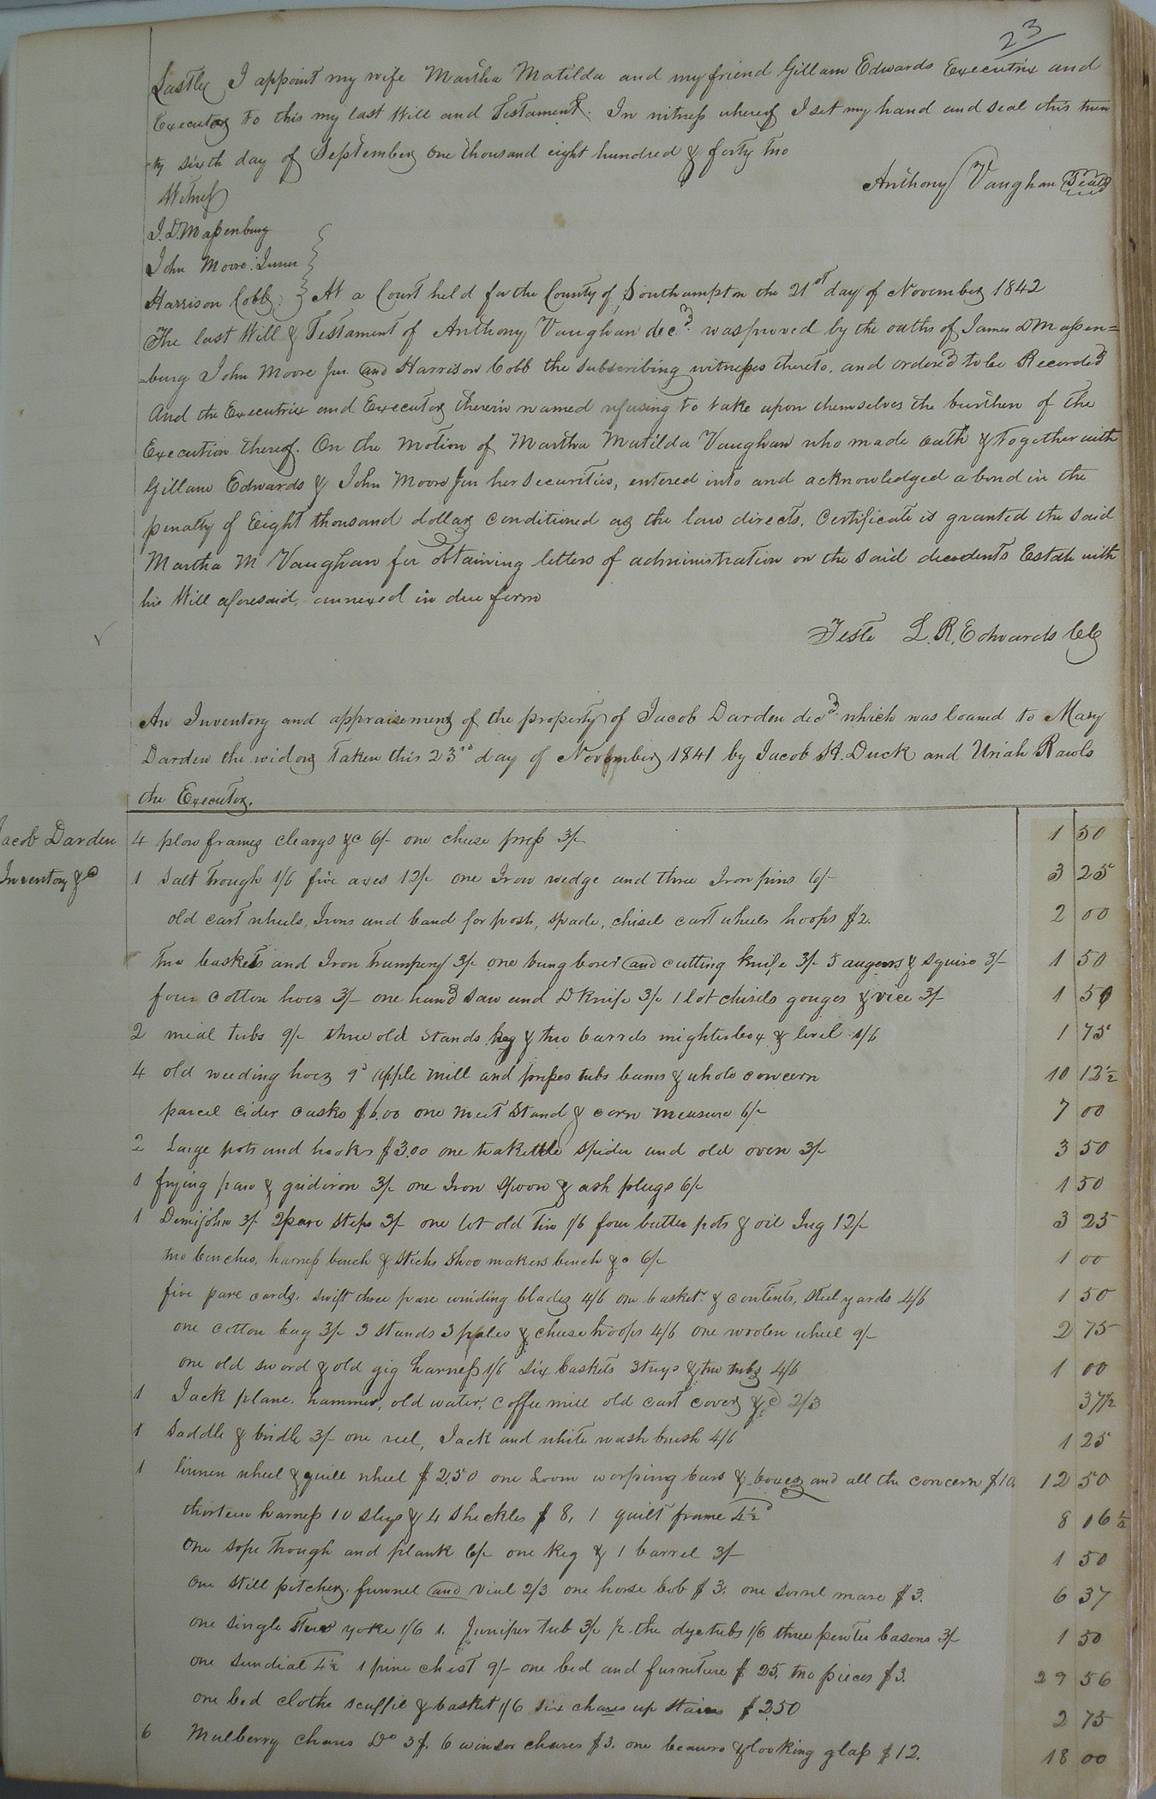 23
Lastly I appoint my wife Martha Matilda and my friend Gillam Edwards Executrix and
Executor to this my last Will and Testament. In witness whereof I set my hand and seal this twen
ty sixth day of September one thousand eight hundred & forty two
Anthony Vaughan Seal
Witness
J. D. Massenburg
John Moore Junr
Harrison Cobb } At a Court held for the County of Southampton the 21st day of November 1842
The last Will & Testament of Anthony Vaughan decd. was proved by the oaths of James D Massen=
-burg John Moore Jun. and Harrison Cobb the subscribing witnesses thereto, and orderd to be Recorded
And the Executrix and Executor therein named refusing to take upon themselves the burthen of the
Execution thereof. On the motion of Martha Matilda Vaughan who made oath & together with
Gillam Edwards & John Moore Jun her securities, entered into and acknowledged a bond in the
penalty of Eight thousand dollars conditioned as the law directs, Certificate is granted the said
Martha M Vaughan for obtaining letters of administration on the said decedents Estate with
his Will aforesaid, annexed in due form
Teste L. R. Edwards CC
An Inventory and appraisement of the property of Jacob Darden decd which was loaned to Mary
Darden the widow taken this 23rd day of November 1841 by Jacob H. Duck and Uriah Rawls
the Executor.
Jacob Darden
Inventory &c
4 plow frames cleavys &c 6/- one cheese press 3/- 1 50
1 Salt trough 1/6 five axes 12/- one Iron wedge and three Iron pins 6/- 3 25
old cart wheels, Irons and band for posh, spade, chisel cart wheels hoops $2. 2 00
two baskets and Iron trumpery 3/- one bung borer and cutting knife 3/- 5 augers & squire 3/- 1 50
four cotton hoes 3/- one hand saw and D Knife 3/- 1 lot chisels gouges & vice 3/- 1 50
2 meal tubs 9/- three old stands keg & two barrels mighterbox & level 1/6 1 75
4 old weeding hoes 9d apple mill and presses tubs beams & whole concern 10 12½
parcel cider casks $6.00 one meet stand & corn measure 6/- 7 00
2 Large pots and hooks $3.00 one teakettle spider and old oven 3/- 3 50
1 frying pan & gridiron 3/- one Iron spoon & ash plugs 6/- 1 50
1 Demijohn 3/- 2 pare steps 3/- one lot old Tin 1/6 four butter pots & oil Jug 12/- 3 25
two benches, harness bench & sticks shoo makers bench &c 6/- 1 00
five pare cards, swift three pare winding blades 4/6 one basket & contents, steelyards 4/6 1 50
one cotton bag 3/- 3 stands 3 pales & cheese hoops 4/6 one woolen wheel 9/- 2 75
one old sword & old gig harness 1/6 six baskets 3 tugs & two tubs 4/6 1 00
1 Jack plane, hammer, old water, coffee mill old cart cover &c 2/3 37½
1 Saddle & bridle 3/- one reel, Jack and white wash brush 4/6 1 25
1 linnen wheel & quill wheel $2.50 one Loom worping bars & boxes and all the concern $10 12 50
thirteen harness 10 sleys & 4 sheckles $8, 1 quilt frame 4½d 8 16½
One sope trough and plank 6/- one keg & 1 barrel 3/- 1 50
one still pitcher, funnel and vial 2/3 one horse bob $3. one sorrel mare $3. 6 37
one single steer yoke 1/6 1 Juniper tub 3/- the dye tubs 1/6 three pewter basons 3/- 1 50
one sundial 4½ 1 pine chest 9/- one bed and furniture $25, two pieces $3. 29 56
one bed clothe scuffle & basket 1/6 six chares up stairs $2.50 2 75
6 Mulberry chares Do 3$. 6 winsor chares $3. one beauro & looking glass $12. 18 00